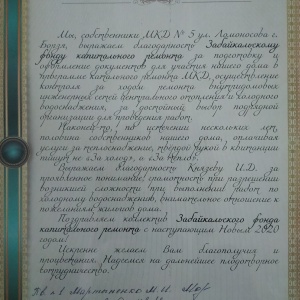 Мы, собственники МКД № 5 ул. Ломоносова г.
Борзя, выражаем благодарность Забайкальскому
фонду капитального ремонта за подготовку и
оформление документов для участия нашего дома в
программе капитального ремонта МКД, осуществление
контроля за ходом ремонта внутридомовых
инженерных сетей центрального отопления и холодного
водоснабжения, за достойный выбор подрядной
организации для проведения работ.
Наконец-то, по истечении нескольких лет,
половина собственников нашего дома, оплачивая
услуги за теплоснабжение, твердой рукой в квитанции
пишут не «За холод», а «За тепло».
Выражаем благодарность Князеву И.Д. за
проявленное понимание, грамотность при разрешении
возникшей сложности при выполнении работ по
холодному водоснабжению, внимательное отношение к
пожеланиям жильцов дома.
Поздравляем коллектив Забайкальского фонда
капитального ремонта с наступающим Новым 2020
годом!
Искренне желаем Вам благополучия и
процветания. Надеемся на дальнейшее плодотворное
сотрудничество.
М. И.